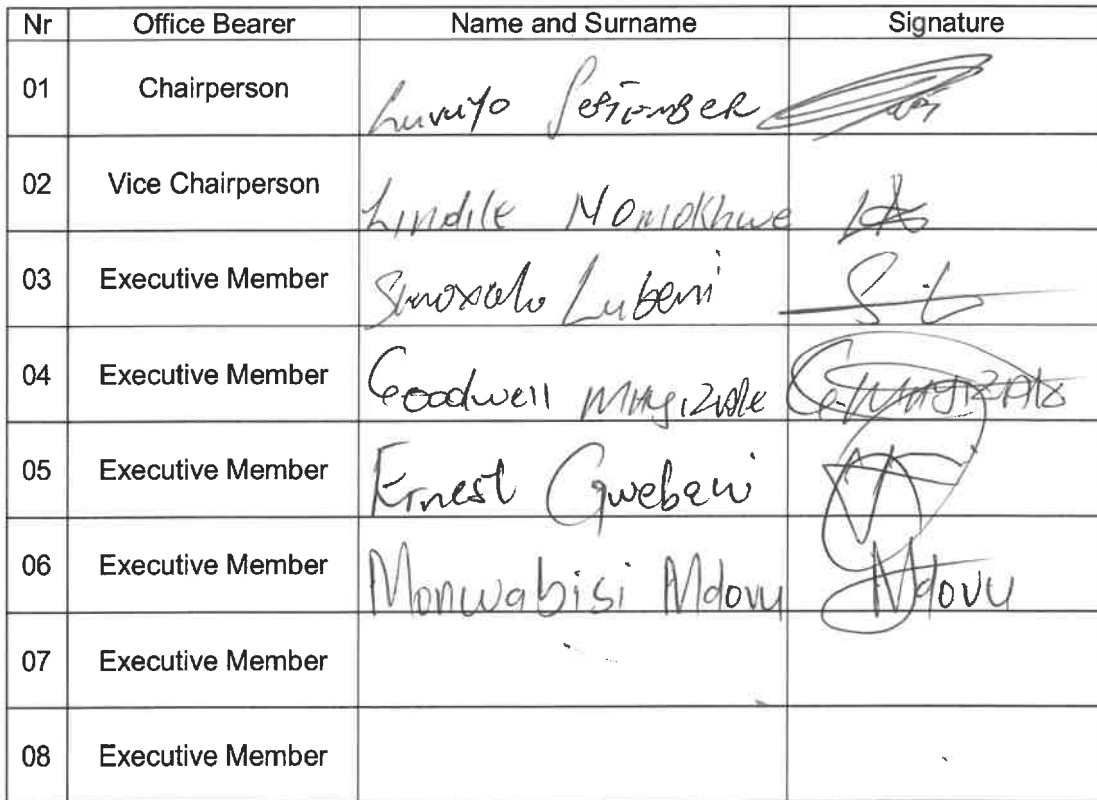 Nr Office Bearer Name and Surname Signature
01 Chairperson Luvuyo September
02 Vice Chairperson Lindile Nomokhwe
03 Executive Member Lubeni S.L
04 Executive Member Goodwell
05 Executive Member Ernest Gwebani
06 Executive Member Monwabisi Mdovu Mdovu
07 Executive Member
08 Executive Member